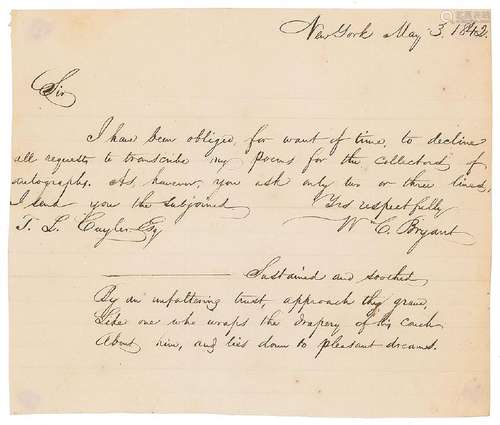 New York May 3. 1842.
Sir
I have been obliged, for want of time, to decline
all requests to transcribe my poems for the collectors of
autographs. As, however, you ask only two or three lines,
I send you the subjoined
Yrs respectfully
T. L. Cuyler Esq
Wm C. Bryant
Sustained and soothed
By an unfaltering trust, approach thy grave,
Like one who wraps the drapery of his couch
About him, and lies down to pleasant dreams.